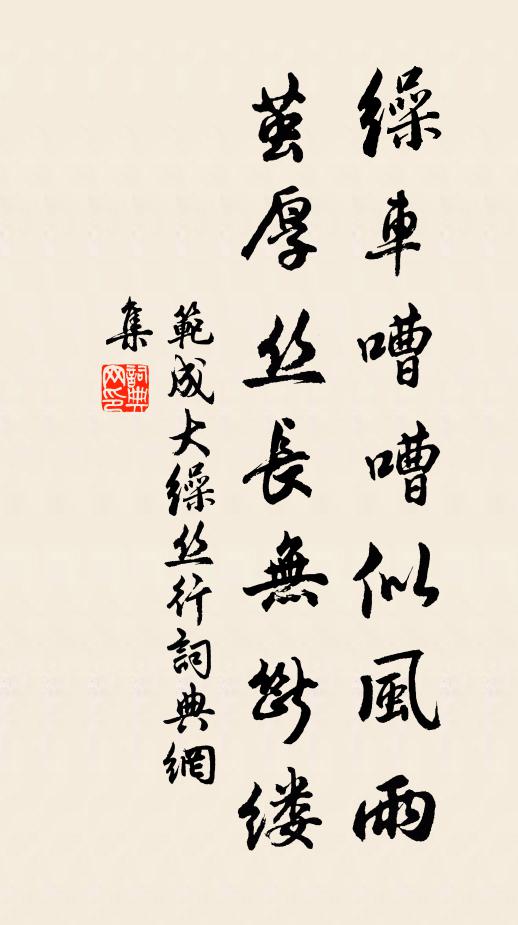 繰車嘈嘈似風雨
茧厚丝長無斷缕
範成大繰丝行詞典網
集
詞典網印